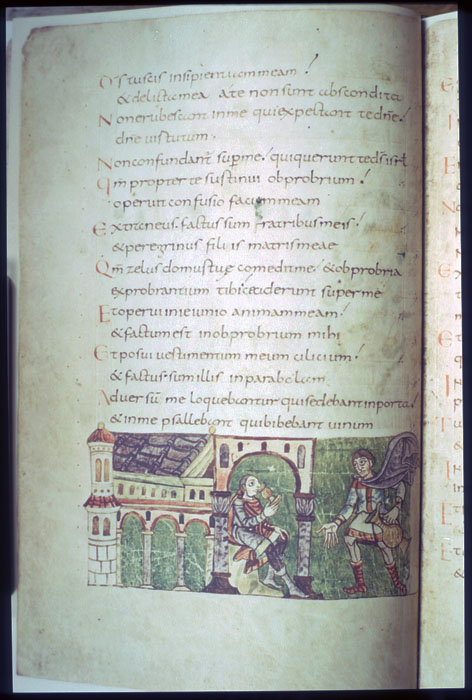 Ds tu scis insipientiam meam
& delicta mea a te non sunt abscondita
Non erubescant in me qui expectant te dne
dne uirtutum
Non confundant sup me qui querunt te ds isrl
Qm propter te sustinui obprobrium
operuit confusio faciem meam
Extraneus factus sum fratribus meis
& peregrinus filiis matris meae
Qm zelus domus tue comedit me & obprobria
exprobrantium tibi ceciderunt super me
Et operui in ieiunio animam meam
& factum est in obprobrium mihi
Et posui uestimentum meum cilicium
& factus sum illis in parabolam
Aduersu me loquebantur qui sedebant in porta
& in me psallebant qui bibebant uinum